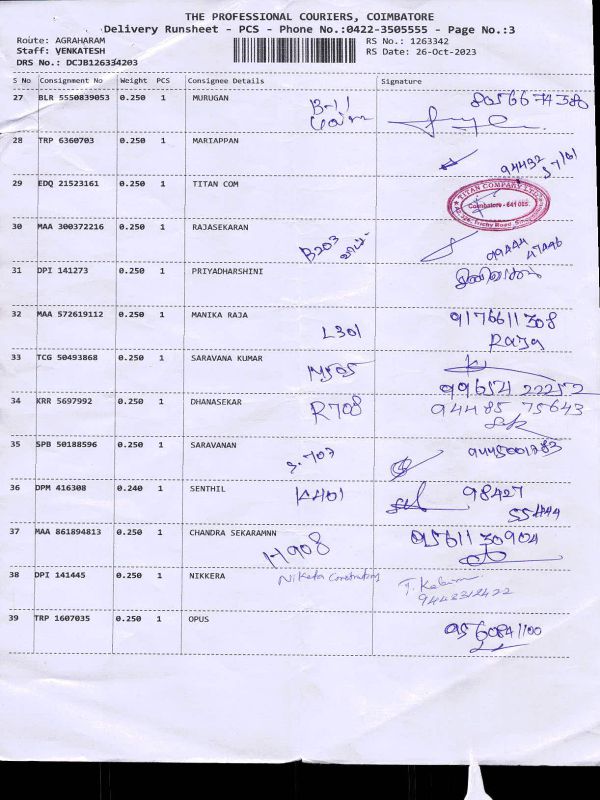 THE PROFESSIONAL COURIERS, COIMBATORE
Delivery Runsheet - PCS - Phone No.:0422-3505555 - Page No.:3
Route: AGRAHARAM
RS No.: 1263342
Staff: VENKATESH
RS Date: 26-Oct-2023
DRS No.: DCJB126334203
S No Consignment No Weight PCS Consignee Details Signature
27 BLR 5550839053 0.250 1 MURUGAN B-11 8056674380
28 TRP 6360703 0.250 1 MARIAPPAN 94432
29 EDQ 21523161 0.250 1 TITAN COM TITAN COMPANY LTD Coimbatore - 641 005. Trichy Road
30 MAA 300372216 0.250 1 RAJASEKARAN B203 09444 47446
31 DPI 141273 0.250 1 PRIYADHARSHINI
32 MAA 572619112 0.250 1 MANIKA RAJA L301 9176611308
Raja
33 TCG 50493868 0.250 1 SARAVANA KUMAR M505 99654 22252
34 KRR 5697992 0.250 1 DHANASEKAR R708 94485 75643
35 SPB 50188596 0.250 1 SARAVANAN S-707 9445001783
36 DPM 416308 0.240 1 SENTHIL K401 98427
55444
37 MAA 861894813 0.250 1 CHANDRA SEKARAMNN H908 95611 30904
38 DPI 141445 0.250 1 NIKKERA Niketa T.
9442312422
39 TRP 1607035 0.250 1 OPUS 9560841100